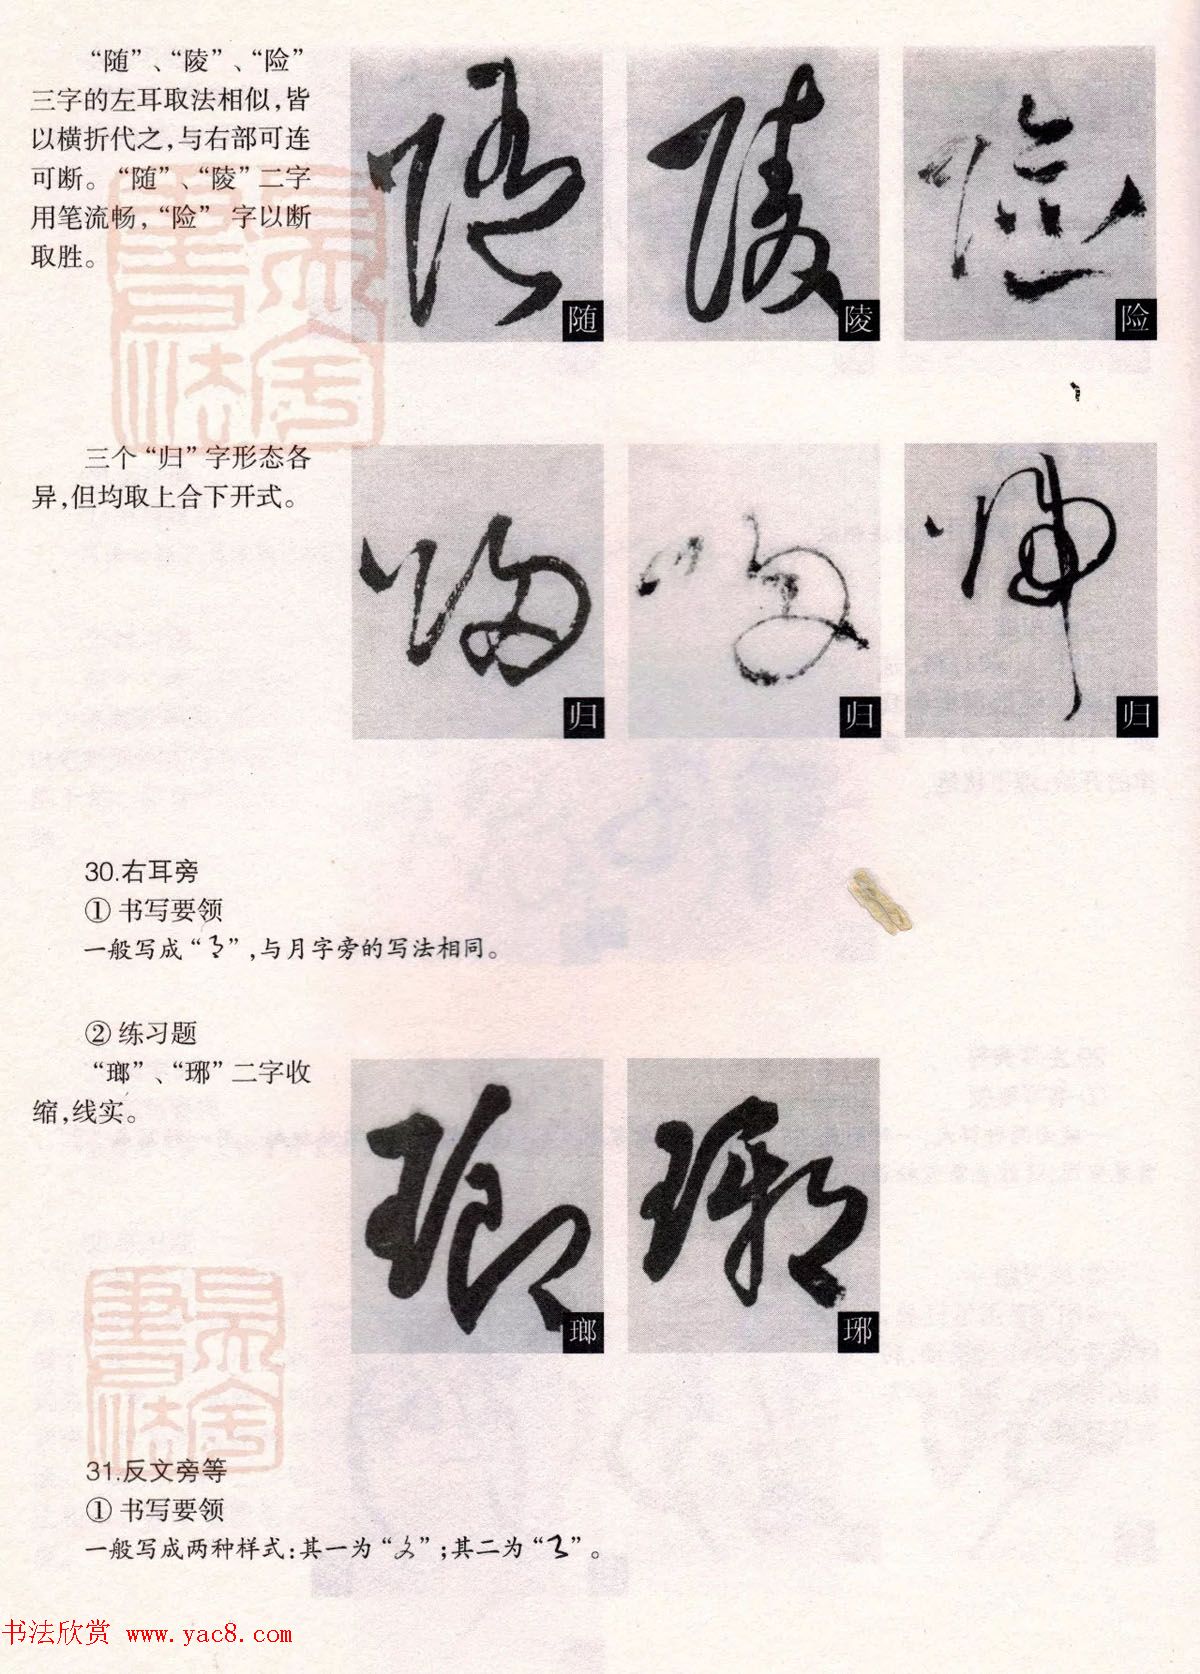 “随”、“陵”、“险”
三字的左耳取法相似,皆
以横折代之,与右部可连
可断。“随”、“陵”二字
用笔流畅,“险”字以断
取胜。
随
陵
险
三个“归”字形态各
异,但均取上合下开式。
归
归
归
30.右耳旁
① 书写要领
一般写成“”,与月字旁的写法相同。
② 练习题
“瑯”、“琊”二字收
缩,线实。
瑯
琊
31.反文旁等
① 书写要领
一般写成两种样式:其一为“”;其二为“”。
书法欣赏 www.yac8.com